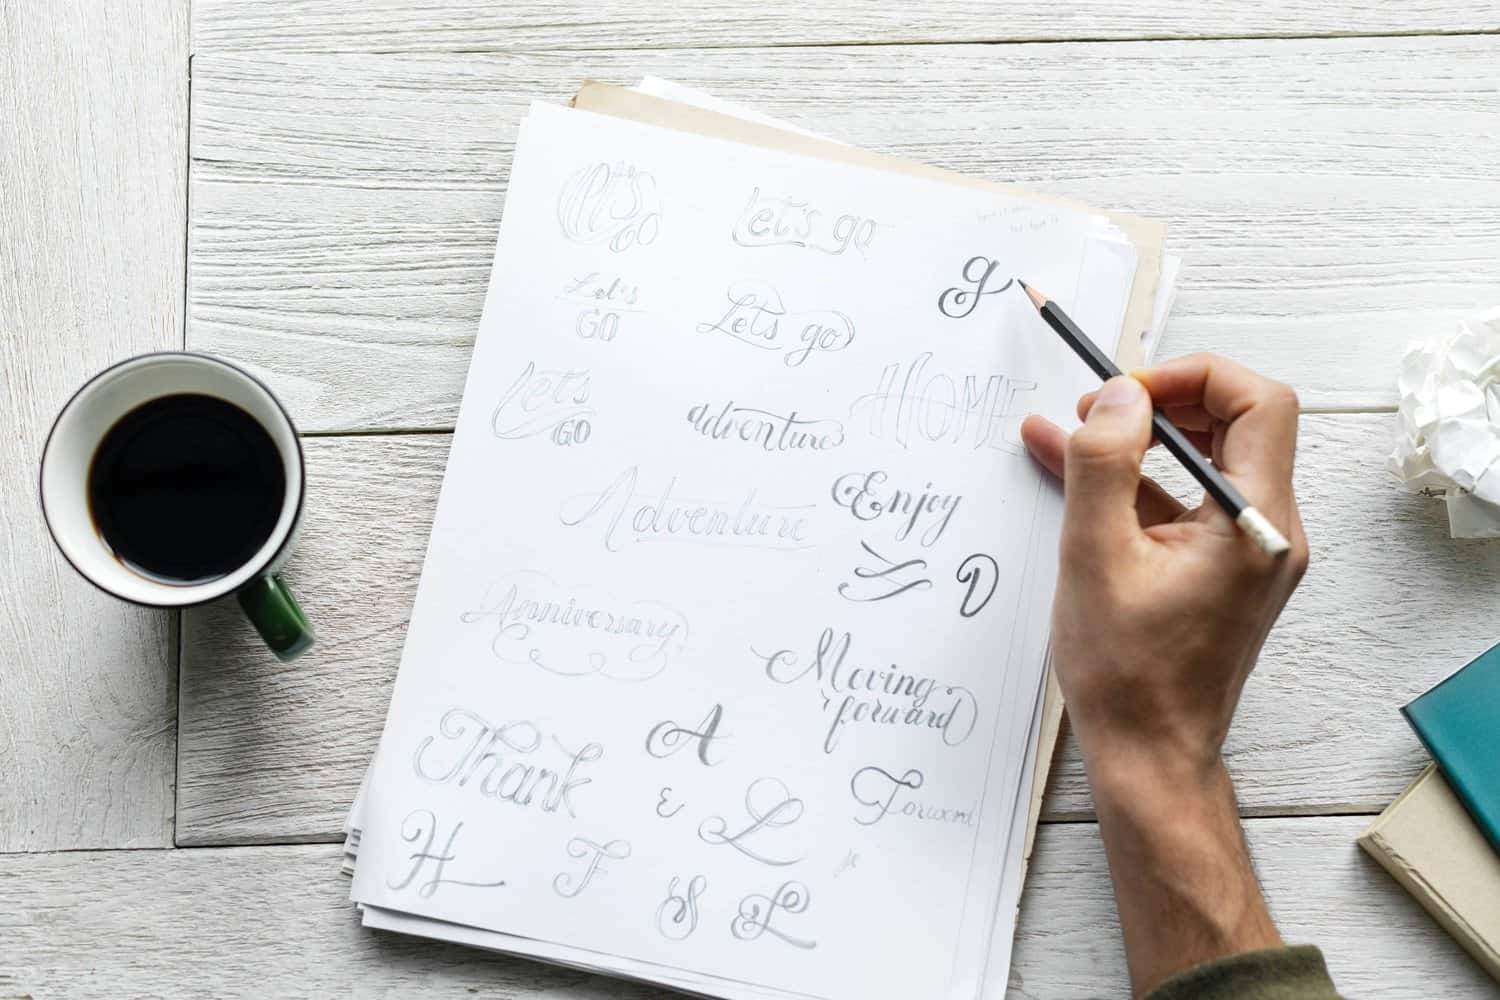 let's
GO
let's go
g
Let's
GO
Lets go
Lets
GO
adventure
HOME
Adventure
Enjoy
D
Anniversary
Moving
forward
A
Thank
Forward
ε
L
H
F
S
L